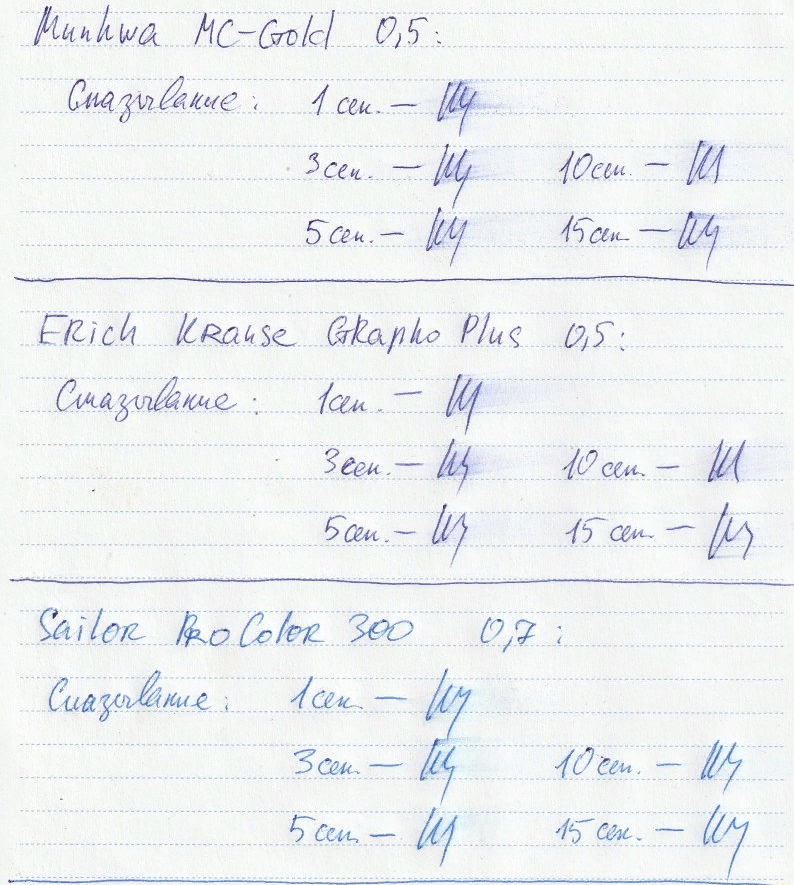 Munhwa MC-Gold 0,5:
Смазывание: 1 сек. —
3 сек. — 10 сек. —
5 сек. — 15 сек —
Erich Krause Grapho Plus 0,5:
Смазывание: 1 сек. —
3 сек. — 10 сек. —
5 сек. — 15 сек. —
Sailor ProColor 300 0,7:
Смазывание: 1 сек. —
3 сек. — 10 сек. —
5 сек. — 15 сек. —